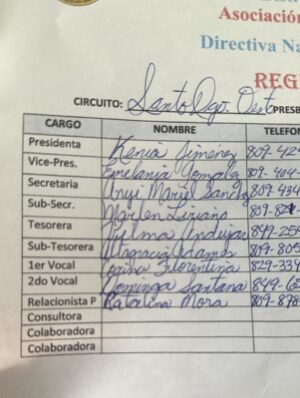 Asociación
Directiva Na
REG
CIRCUITO: Santo Dgo. Oest PRESB
CARGO NOMBRE TELEFO
Presidenta Kenia Jiménez 809-424
Vice-Pres. Emelania Gonzalez 809-404-
Secretaria Anyi Mariel Sanch 809-434
Sub-Secr. Marlen Liriano 809-821
Tesorera Thelma Andujar 849-254
Sub-Tesorera Altagracia Adames 809-805
1er Vocal Florentina 829-334
2do Vocal Dominga Santana 849-62
Relacionista P Katalina Mora 809-878
Consultora
Colaboradora
Colaboradora